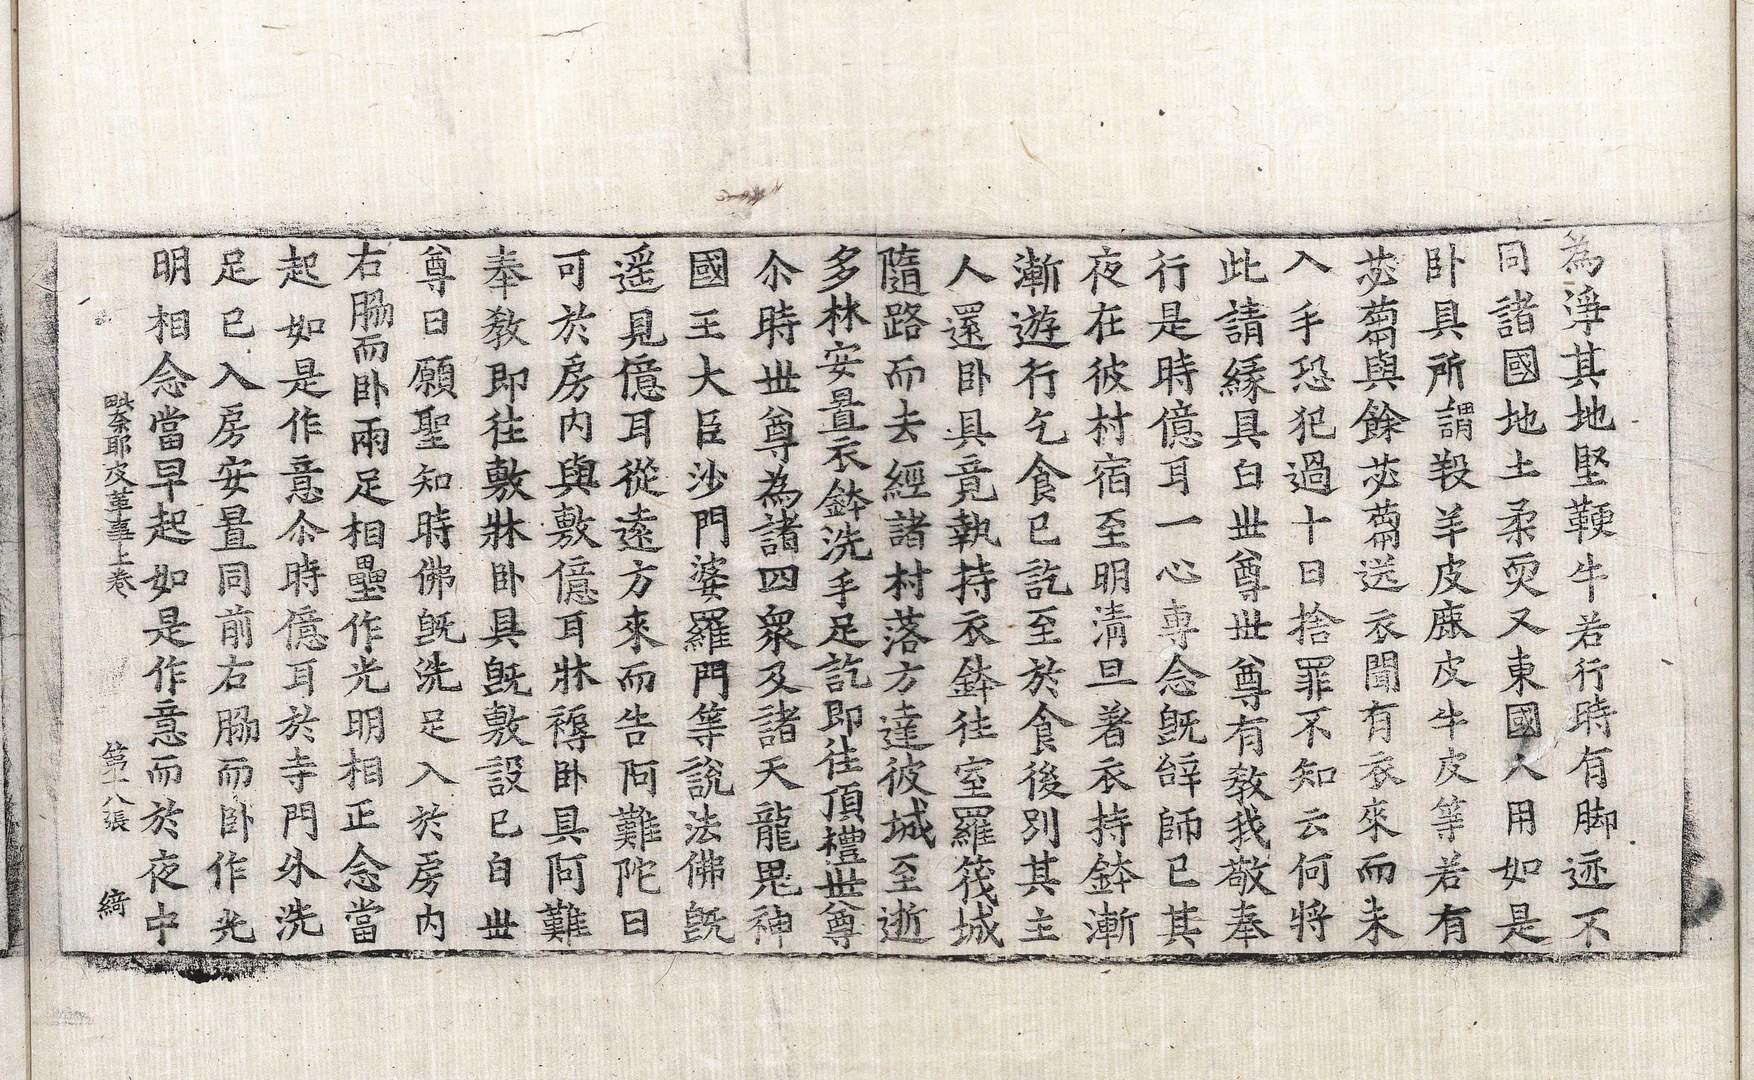 為淨其地堅鞕牛若行時有脚迹不
同諸國地土柔耎又東國人用如是
卧具所謂羖羊皮鹿皮牛皮等若有
苾蒭與餘苾蒭送衣聞有衣來而未
入手恐犯過十日捨罪不知云何將
此請緣具白世尊世尊有教我敬奉
行是時億耳一心專念旣辝師已其
夜在彼村宿至明清旦著衣持鉢漸
漸遊行乞食已訖至於食後別其主
人還卧具竟執持衣鉢往室羅筏城
隨路而去經諸村落方達彼城至逝
多林安置衣鉢洗手足訖即往頂禮世尊
尒時世尊為諸四衆及諸天龍鬼神
國王大臣沙門婆羅門等說法佛旣
遥見億耳從遠方來而告阿難陀曰
可於房内與敷億耳牀褥卧具阿難
奉教即往敷牀卧具旣敷設已白世
尊曰願聖知時佛旣洗足入於房内
右脇而卧兩足相壘作光明相正念當
起如是作意尒時億耳於寺門外洗
足已入房安置同前右脇而卧作光
明相念當早起如是作意而於夜中
毗奈耶皮革事上卷 第十八張 綺